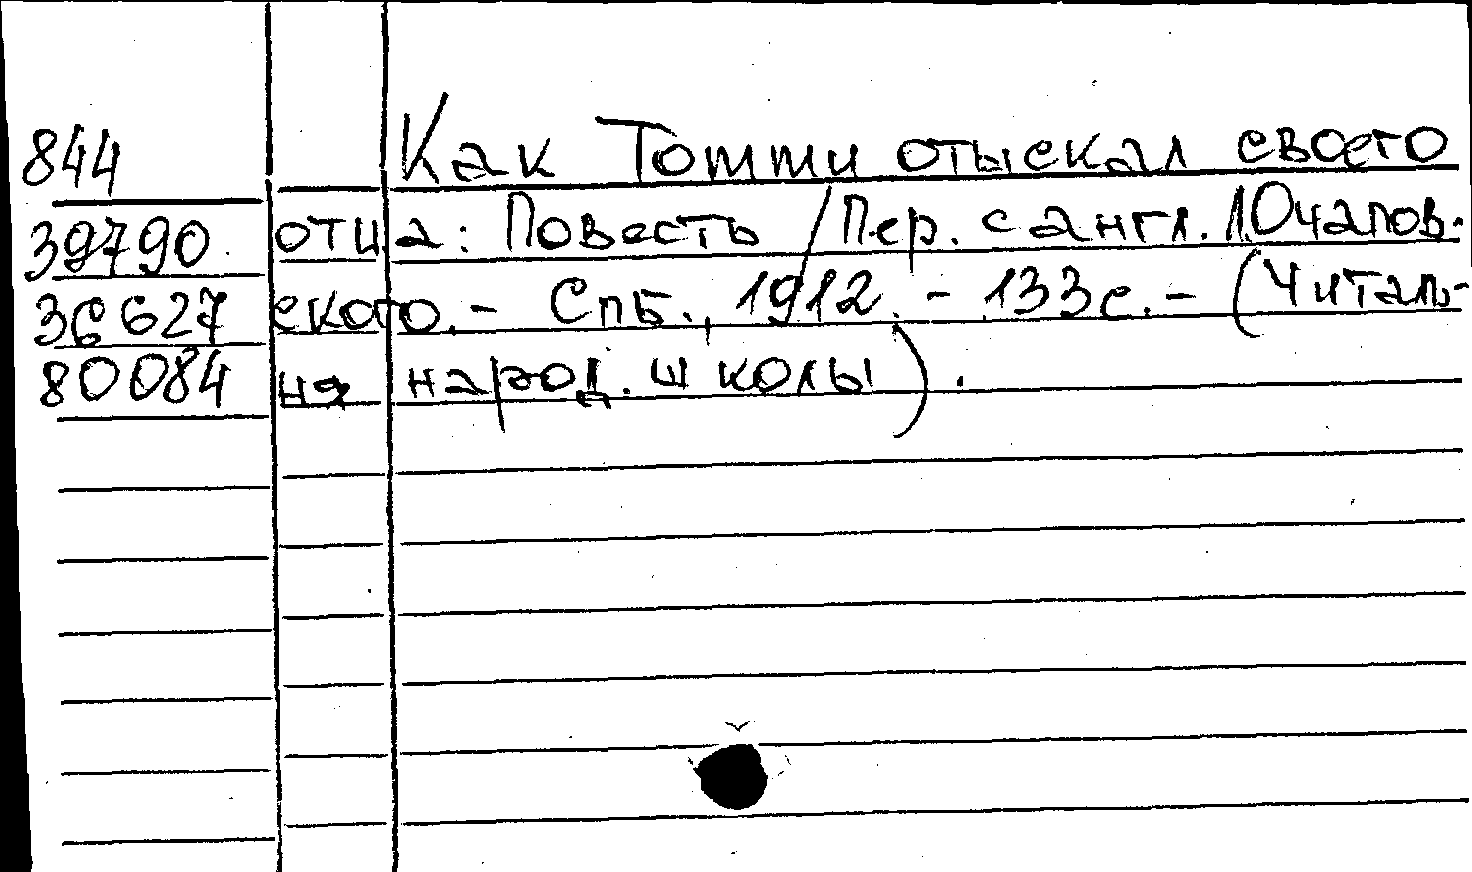 844 Как Томми отыскал своего
39790 отца: Повесть / Пер. с англ. Л.Очапов-
36627 ского. - Спб., 1912. - 133с. - (Читаль-
80084 ня народ. школы).